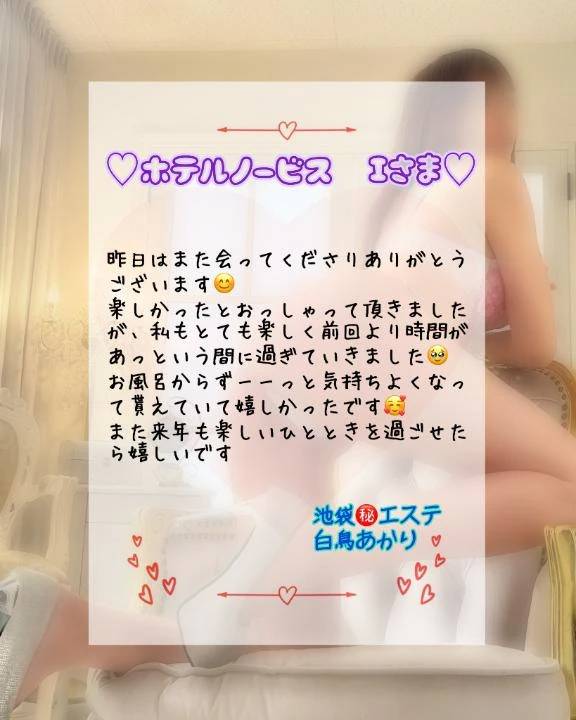 ♡ホテルノービス　Iさま♡
昨日はまた会ってくださりありがとう
ございます😊
楽しかったとおっしゃって頂きました
が、私もとても楽しく前回より時間が
あっという間に過ぎていきました🥹
お風呂からずーーっと気持ちよくなっ
て貰えていて嬉しかったです🥰
また来年も楽しいひとときを過ごせた
ら嬉しいです
池袋㊙エステ
白鳥あかり